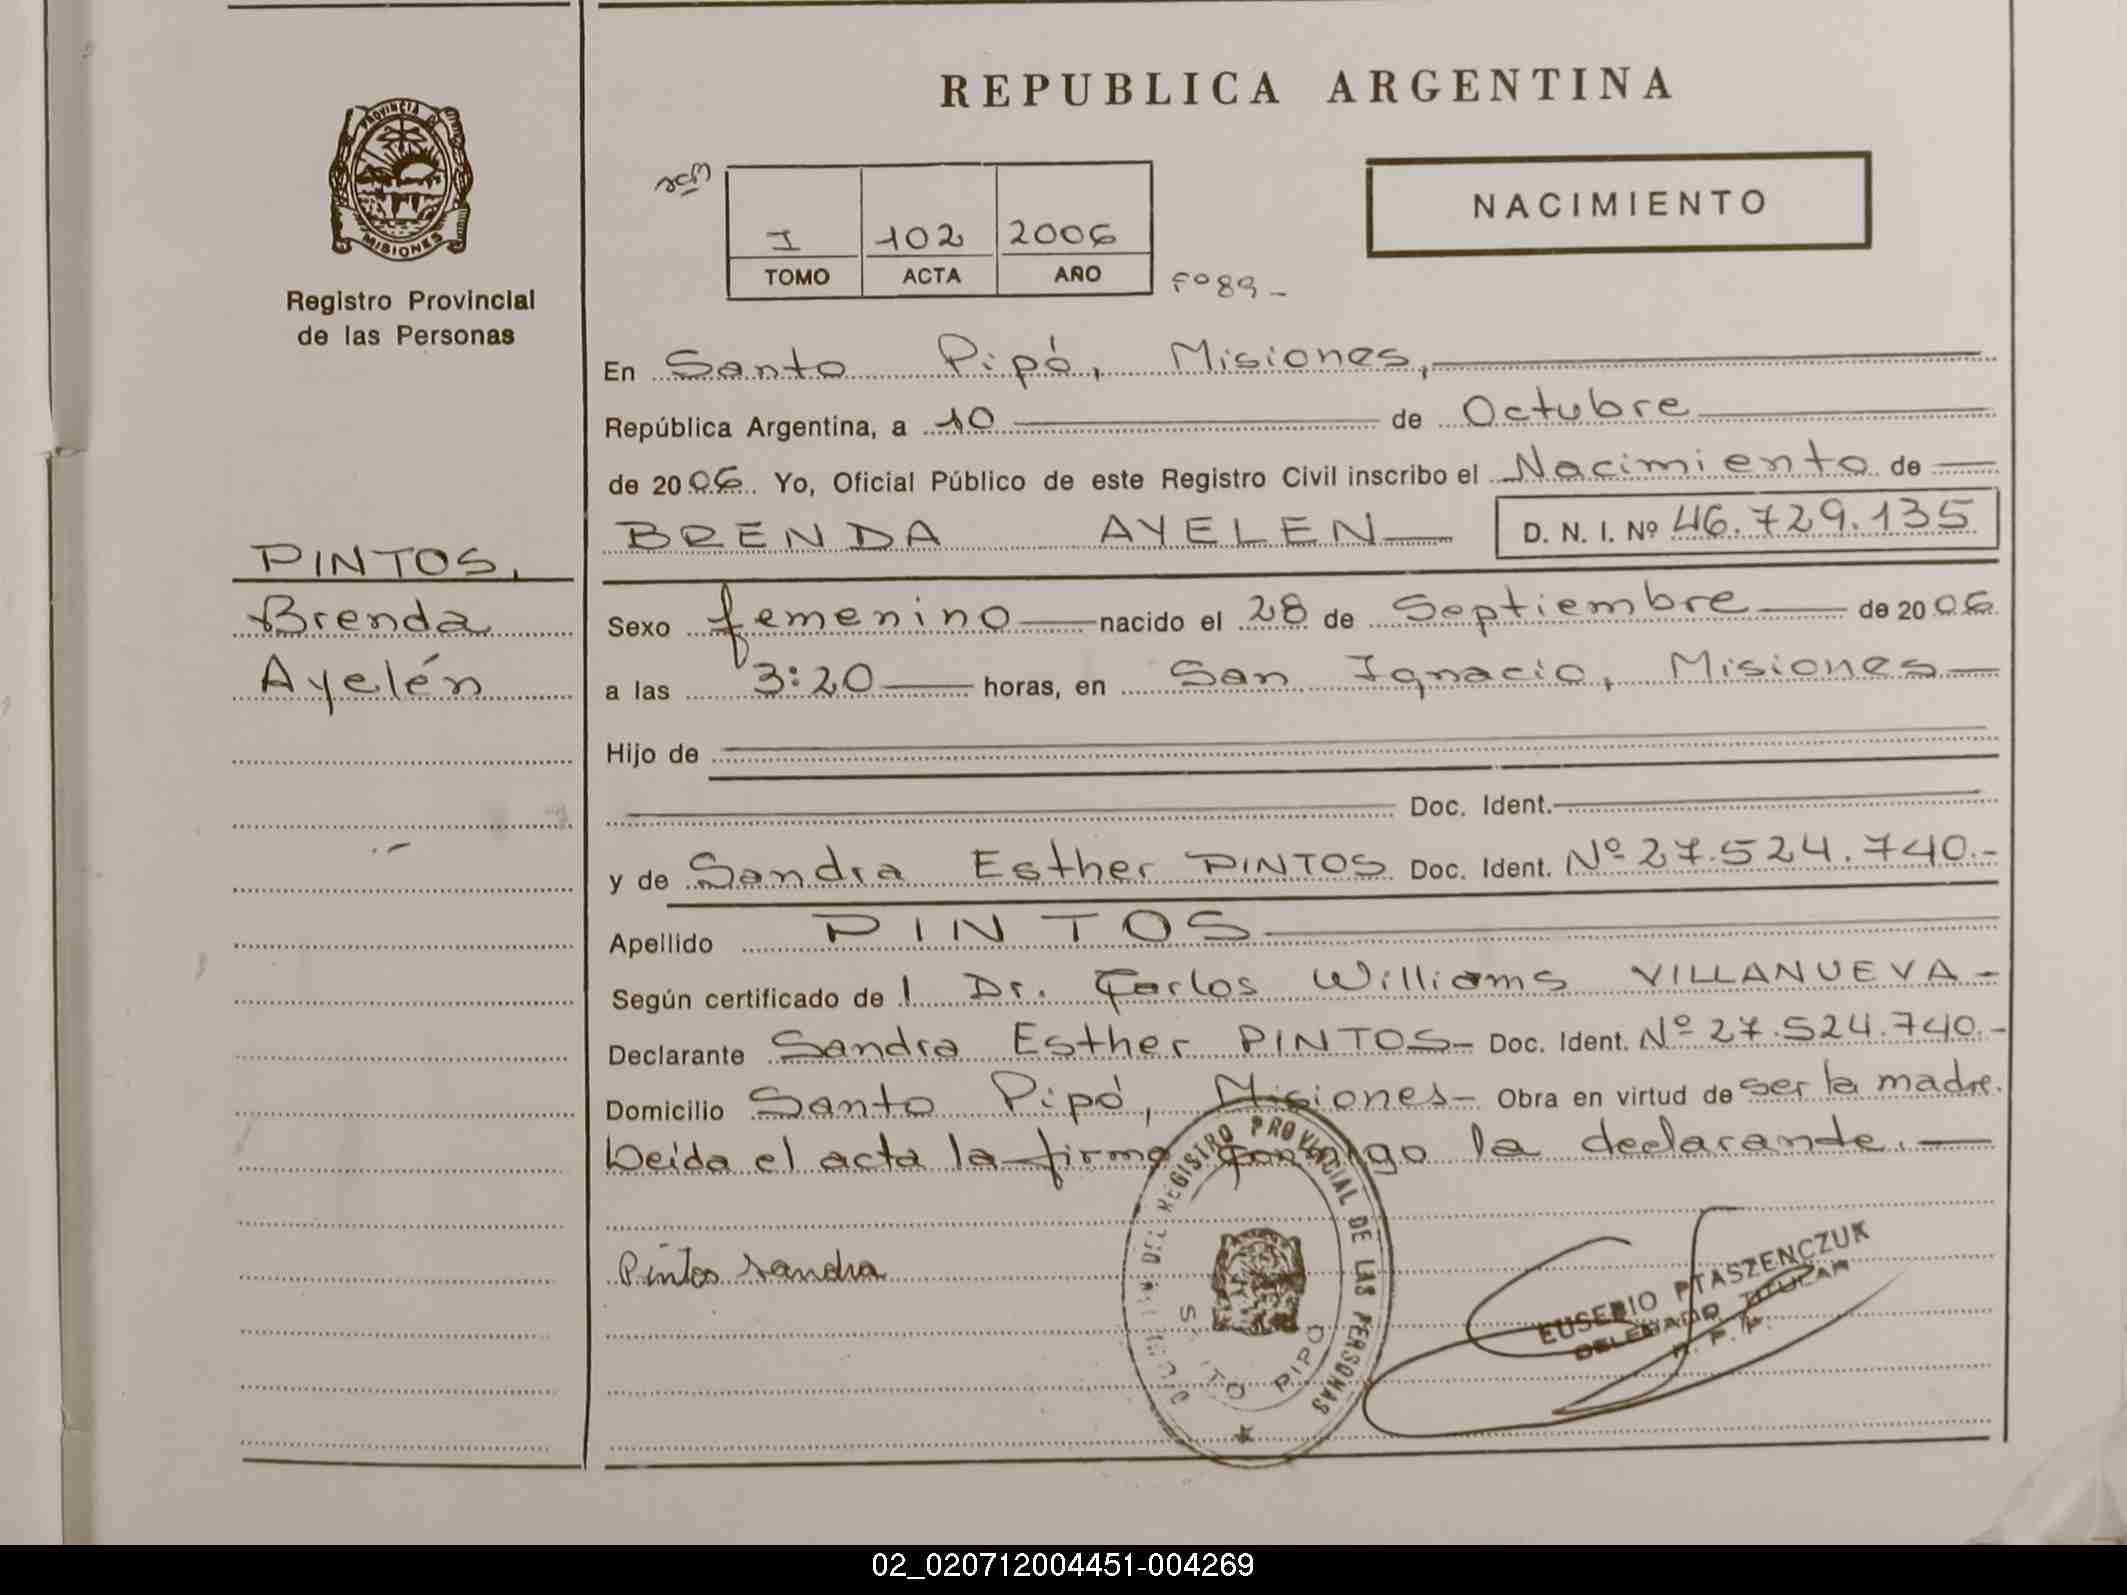 REPUBLICA ARGENTINA
PROVINCIA D
MISIONES
Registro Provincial
de las Personas
NACIMIENTO
I 102 2006
TOMO ACTA AÑO
Fº 89 -
En Santo Pipó, Misiones,
República Argentina, a 10 de Octubre
de 2006. Yo, Oficial Público de este Registro Civil inscribo el Nacimiento de
BRENDA AYELEN D. N. I. Nº 46.729.135
PINTOS,
Brenda
Ayelén
Sexo femenino nacido el 28 de Septiembre de 2006
a las 3:20 horas, en San Ignacio, Misiones
Hijo de
Doc. Ident.
y de Sandra Esther PINTOS Doc. Ident. Nº 27.524.740.-
Apellido PINTOS
Según certificado de l Dr. Carlos Williams VILLANUEVA -
Declarante Sandra Esther PINTOS- Doc. Ident. Nº 27.524.740.-
Domicilio Santo Pipó, Misiones- Obra en virtud de ser la madre.
Leída el acta la firma conmigo la declarante.
Pintos Sandra
DEL REGISTRO PROVINCIAL DE LAS PERSONAS
PIPO
EUSEBIO PTASZENCZUK
DELEGADO TITULAR
R. P. P.
02_020712004451-004269